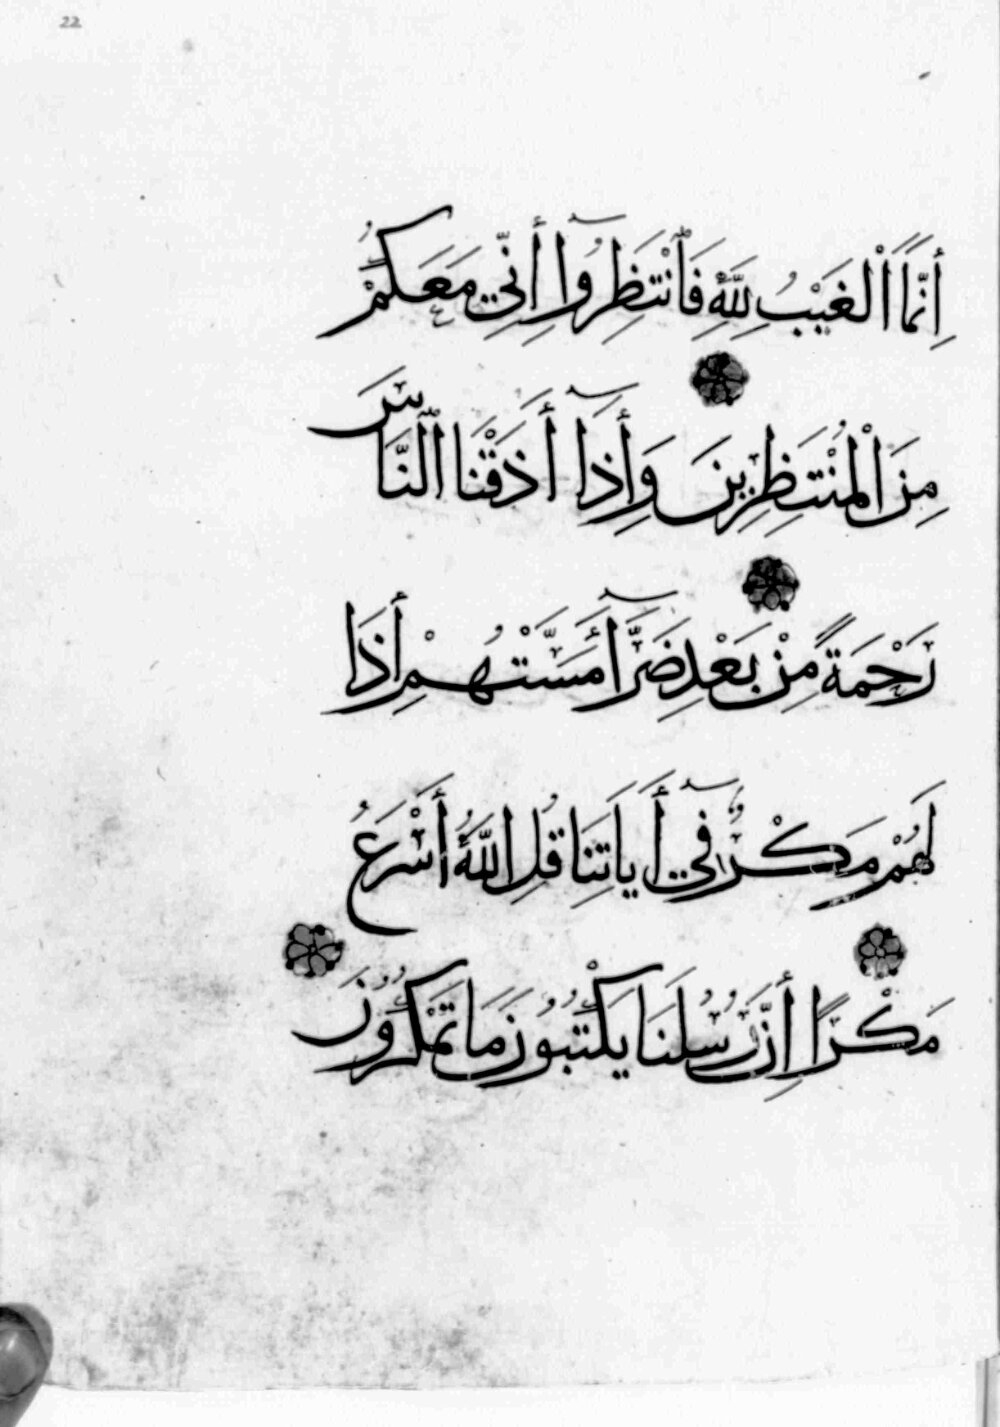 22
إِنَّمَا الْغَيْبُ لِلَّهِ فَانْتَظِرُوآ إِنِّي مَعَكُمْ
مِنَ الْمُنْتَظِرِينَ وَإِذَآ أَذَقْنَا النَّاسَ
رَحْمَةً مِنْ بَعْدِ ضَرَّآءَ مَسَّتْهُمْ إِذَا
لَهُمْ مَكْرٌ فِيٓ أَيَاتِنَا قُلِ اللَّهُ أَسْرَعُ
مَكْرًا إِنَّ رُسُلَنَا يَكْتُبُونَ مَا تَمْكُرُونَ